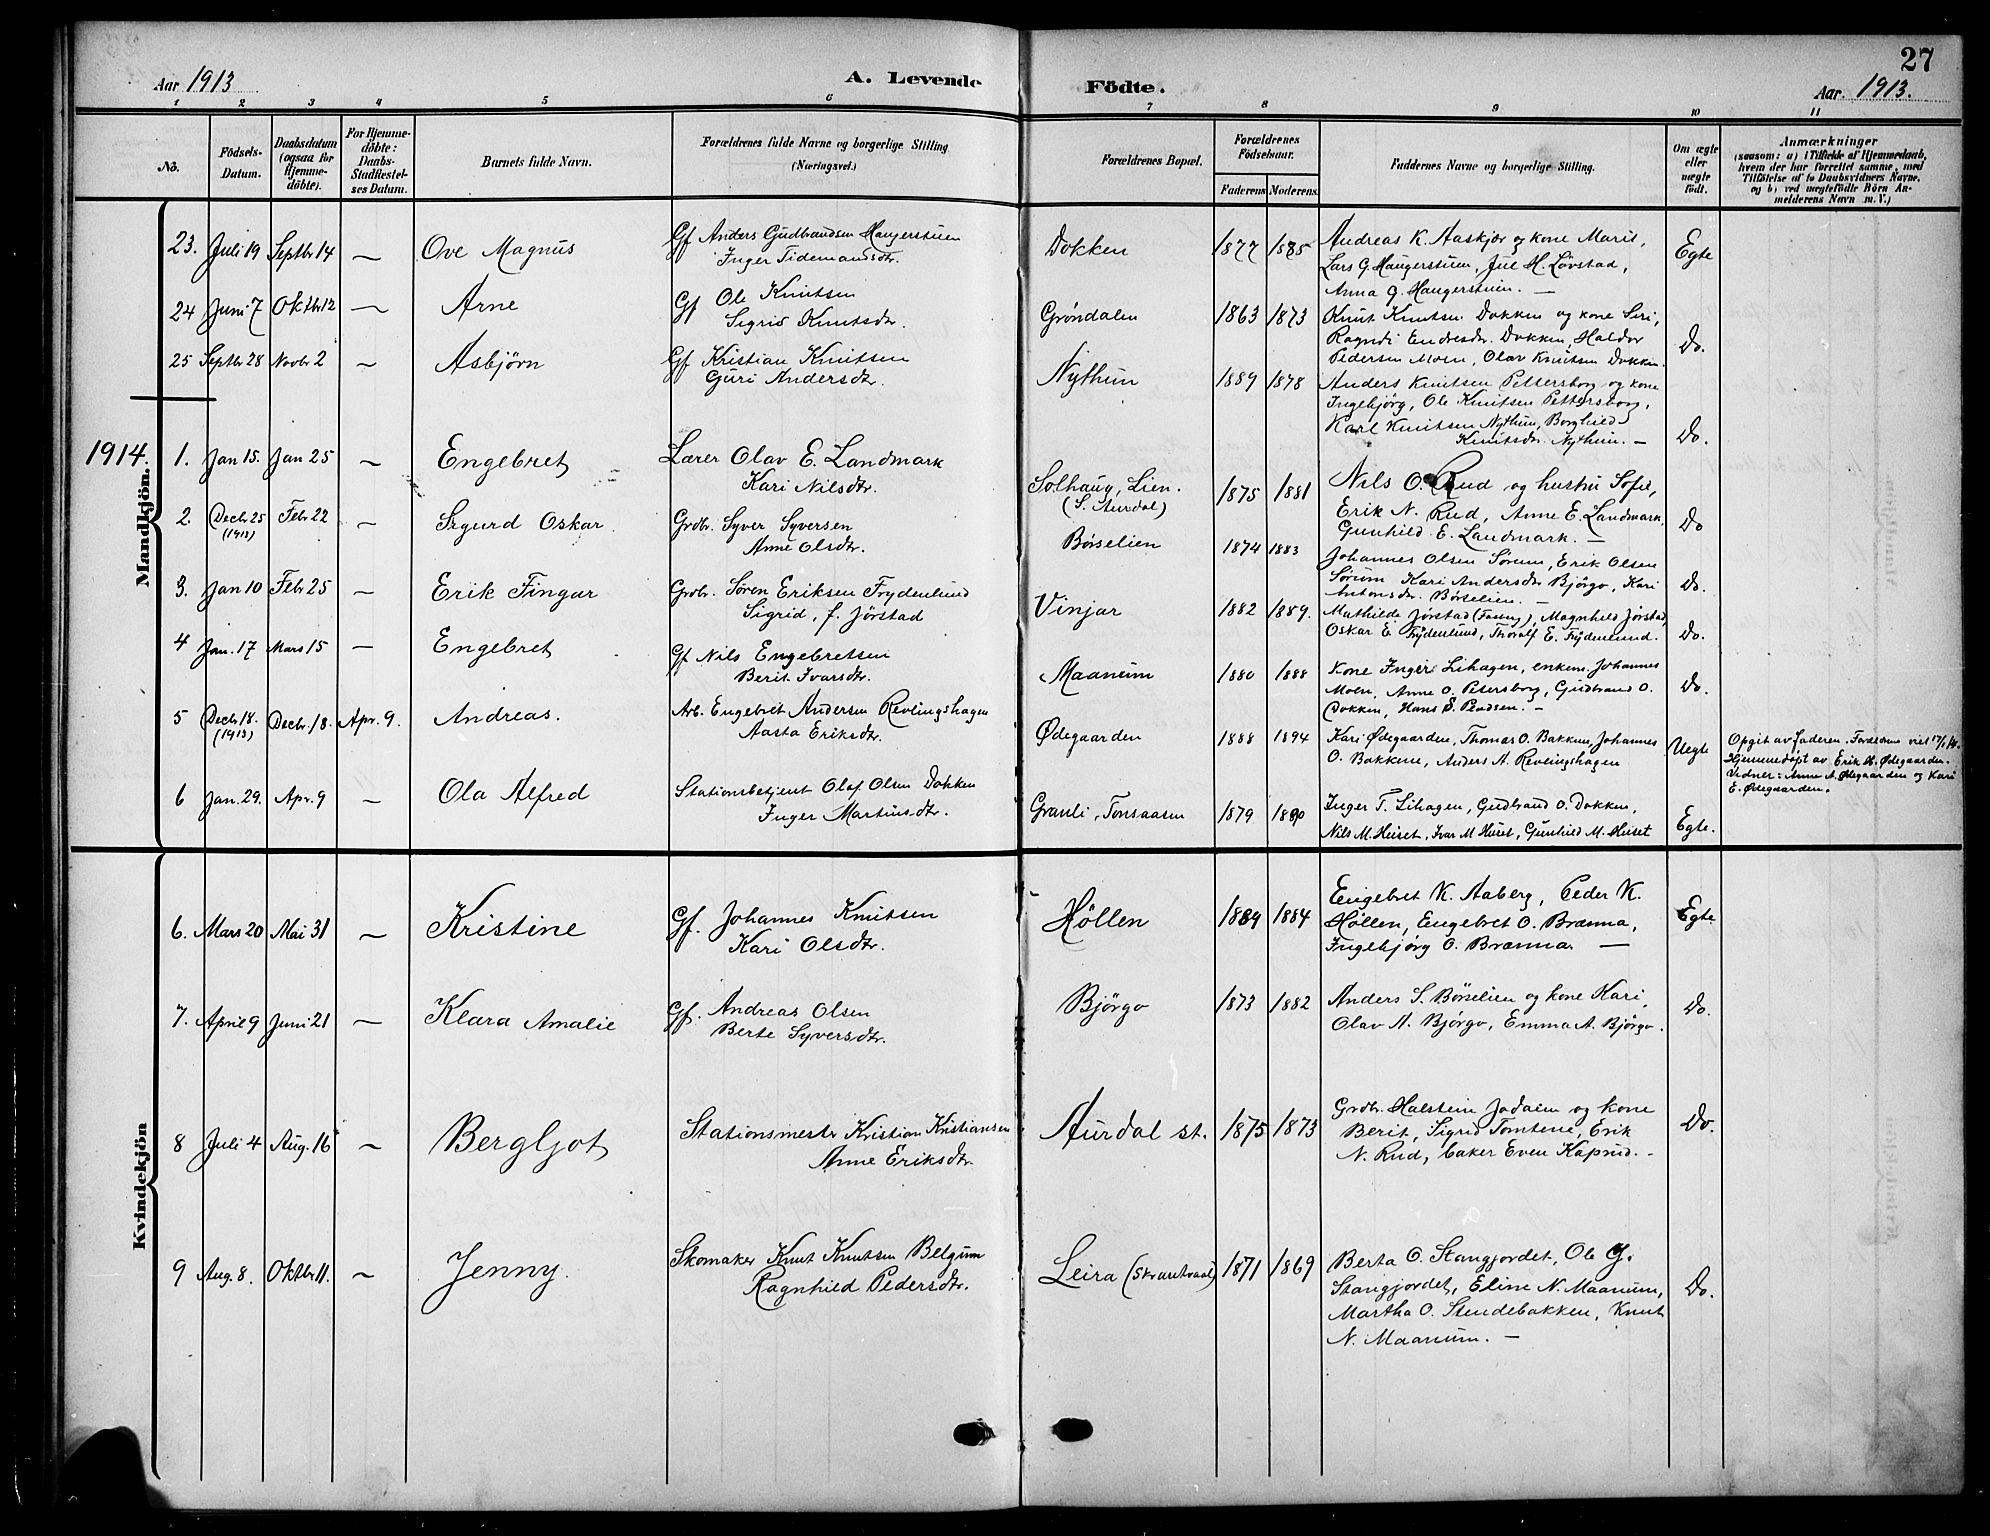 27
Aar 1913
A. Levende
Födte.
Aar. 1913.
1 2 3 4 5 6 7 8 9 10 11
No.
Födsels-Datum.
Daabsdatum (ogsaa for Hjemme-döbte).
For Hjemme-döbte: Daabs-Stadfæstel-ses Datum.
Barnets fulde Navn.
Forældrenes fulde Navne og borgerlige Stilling (Næringsvei.)
Forældrenes Bopæl.
Forældrenes Födselsaar.
Faderens Moderens.
Faddernes Navne og borgerlige Stilling.
Om ægte eller uægte födt.
Anmærkninger
(saasom: a) i Tilfælde af Hjemmedaab,
hvem der har forrettet samme, med
Tilföielse af to Daabsvidners Navne,
og b) ved uægtefödte Börn An-
melderens Navn m. V.)
Mandkjön.
23. Juli 19 Septbr 14 — Ove Magnus
Gf Anders Gudbrandsen Haugerstuen
Inger Tidemandsdtr.
Dokken 1877 1885
Andreas K. Aaskjær og kone Marit,
Lars G. Haugerstuen, Jul H. Lövstad,
Anna G. Haugerstuen. —
Egte
24 Juni 7 Oktbr 12 — Arne
Gf Ole Knutsen
Sigrid Knutsdtr.
Gröndalen 1863 1873
Knut Knutsen Dokken og kone Siri,
Ragndi Endresdr. Dokken, Haldor
Pedersen Moen, Olav Knutsen Dokken.
Do.
25 Septbr 28 Novbr 2 — Asbjörn
Gf Kristian Knutsen
Guri Andersdtr.
Nythun 1889 1878
Anders Knutsen Pettersborg og kone
Ingebjörg, Ole Knutsen Pettersborg,
Karl Knutsen Nythun, Borghild
Knutsdr. Nythun. —
Do.
1914.
1. Jan 15. Jan 25 — Engebret
Lærer Olav E. Landmark
Kari Nilsdtr.
Solhaug, Lien.
(S. Aurdal)
1875 1881
Nils O. Rud og hustru Sofie,
Erik N. Rud, Anne E. Landmark,
Gunhild E. Landmark. —
Do
2. Decbr 25
(1913)
Febr 22 — Sigurd Oskar
Grdbr. Syver Syversen
Anne Olsdtr.
Börselien 1874 1883
Johannes Olsen Sörum, Erik Olsen
Sörum Kari Andersdr Björgo, Kari
Antonsdr. Börselien. —
Do.
3. Jan 10 Febr 25 — Erik Fingar
Grdbr. Sören Eriksen Frydenlund
Sigrid, f. Jörstad
Vinjar 1882 1889.
Mathilde Jörstad, Magnhild Jörstad,
Oskar E. Frydenlund, Thoralf E. Frydenlund.
Do.
4 Jan. 17 Mars 15 — Engebret
Gf Nils Engebretsen
Berit Ivarsdtr.
Maanum 1880 1888
Kone Inger Lihagen, enkem. Johannes
Moen, Anne O. Petersborg, Gudbrand O.
Dokken, Hans S. —
Do.
5 Decbr 18.
(1913)
Decbr. 18. Apr. 9. Andreas.
Arb. Engebret Andersen Revlingshagen
Aasta Eriksdtr.
Ødegaarden 1888 1894
Kari Ødegaarden, Thomas O. Bakken, Johannes
O. Bakkene, Anders A. Revlingshagen
Uegte
Opgit av faderen. Forældrene viet
Hjemmedöpt av Erik H. Ødegaarden.
Vidner: Anne A. Ødegaarden og Kari
E. Ødegaarden.
6 Jan. 29. Apr. 9 — Ola Alfred
Stationsbetjent Olaf Olsen Dokken
Inger Martinsdtr.
Granli, Tonsaasen 1879 1880
Inger T. Lihagen, Gudbrand O. Dokken,
Nils M. Huset, Ivar M Huset, Gunhild M. Huset
Egte.
Kvindekjön
6. Mars 20 Mai 31 — Kristine
Gf. Johannes Knutsen
Kari Olsdtr.
Höllen 1889 1884
Engebret K. Aaberg, Peder K.
Höllen, Engebret O. Brænna,
Ingebjörg O. Brænna. —
Egte
7. April 9 Juni 21 — Klara Amalie
Gf. Andreas Olsen
Berte Syversdtr.
Björgo 1873 1882
Anders S. Börselien og kone Kari,
Olav N. Björgo, Emma A. Björgo.
Do.
8 Juli 4 Aug. 16 — Bergljot
Stationsmester Kristian Kristiansen
Anne Eriksdtr.
Aurdal st. 1875 1873
Grdbr. Halstein Jodalen og kone
Berit, Sigrid Tomtene, Erik
N. Rud, baker Even Kaprud. -
Do.
9 Aug. 8. Oktbr 11. — Jenny.
Skomaker Knut Knutsen Belgum
Ragnhild Pedersdtr.
Leira (Skrautvaal) 1871 1869
Berta O. Stangjordet, Ole G.
Stangjordet, Eline N. Maanum,
Martha O. Stendebakken, Knut
N. Maanum. —
Do.